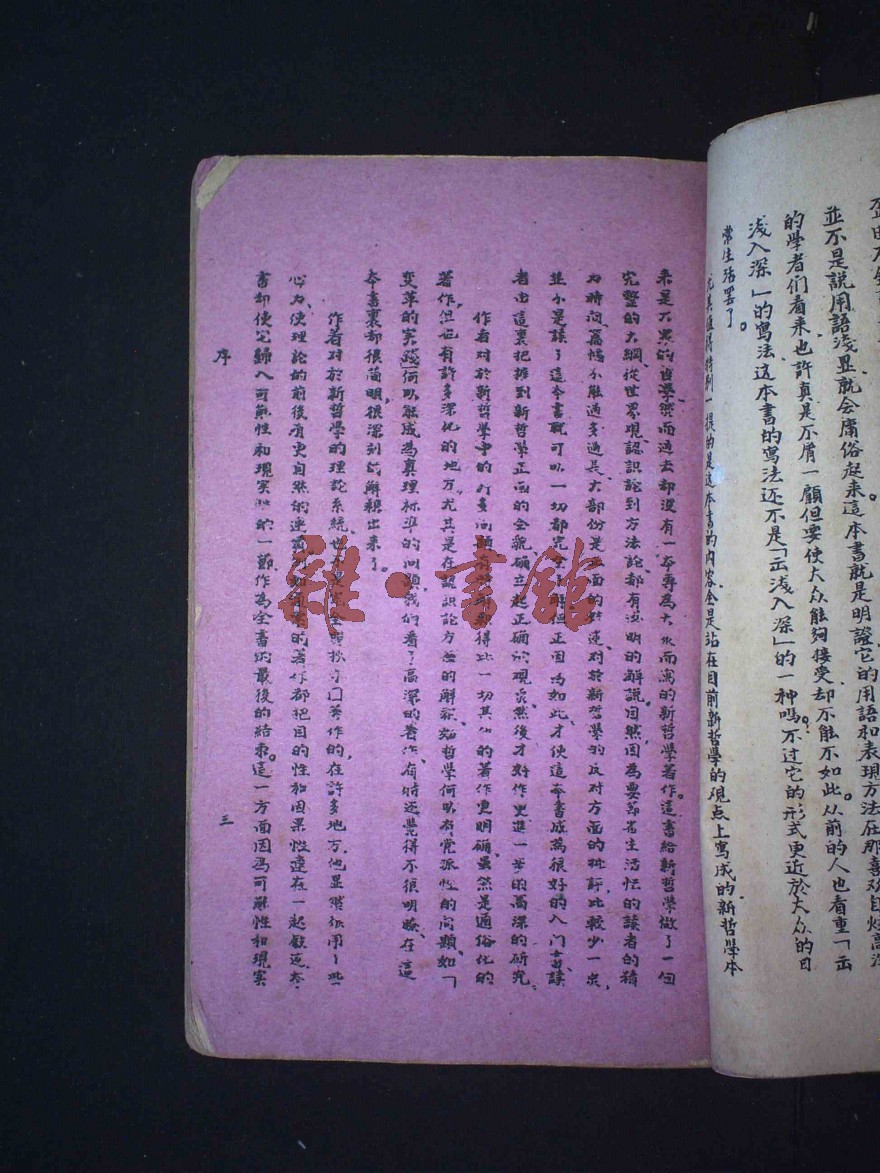 並不是說用語淺显就会庸俗起來這本書就是明證它的用語和表現方法在那喜欢自炫高深
的學者们看来也許真是不屑一顧但要使大众能夠接受却不能不如此。从前的人也看重「云
淺入深」的寫法這本書的寫法还不是「云淺入深」的一种嗎？不过它的形式更近於大众的日
常生活罢了。
尤其值得特別一提的是這本書的内容全是站在目前新哲學的观点上寫成的新哲學本
来是大众的哲學然而過去却沒有一本專為大众而寫的新哲學著作。這書給新哲學做了一個
完整的大綱從世界观認識論到方法論都有淺明的解說自然因為要節省生活忙的讀者的精
力時间、篇幅不能過多過長大部份是正面的敘述对於新哲學的反对方面的批評比較少一点，
並不是讀了這本書就可以一切都完全了解但正因為如此才使這本書成為很好的入门書讀
者由這裏把握到新哲學正面的全貌确立起正确的观点然後才好作更進一步的高深的研究
作者对於新哲學中的許多问題有時解釋得比一切其他的著作更明确虽然是通俗化的
著作，但也有許多深化的地方尤其是在認識論方面的解釈如哲學何以有党派性的问題如「
变革的实踐」何以能成為真理标準的问題我们看了高深的著作有時还覺得不很明瞭在這
本書裏却很简明很深刻的解釋出来了。
作者对於新哲學的理論系統也不是完全照抄外国著作的，在許多地方他显然很用了些
心力、使理論的前後有更自然的連貫例如有的著作都把目的性和因果性連在一起敘述本
書却使它歸入可能性和現实性的一節作為全書的最後的結束。這一方面因為可能性和現实
序
三
雜·書館